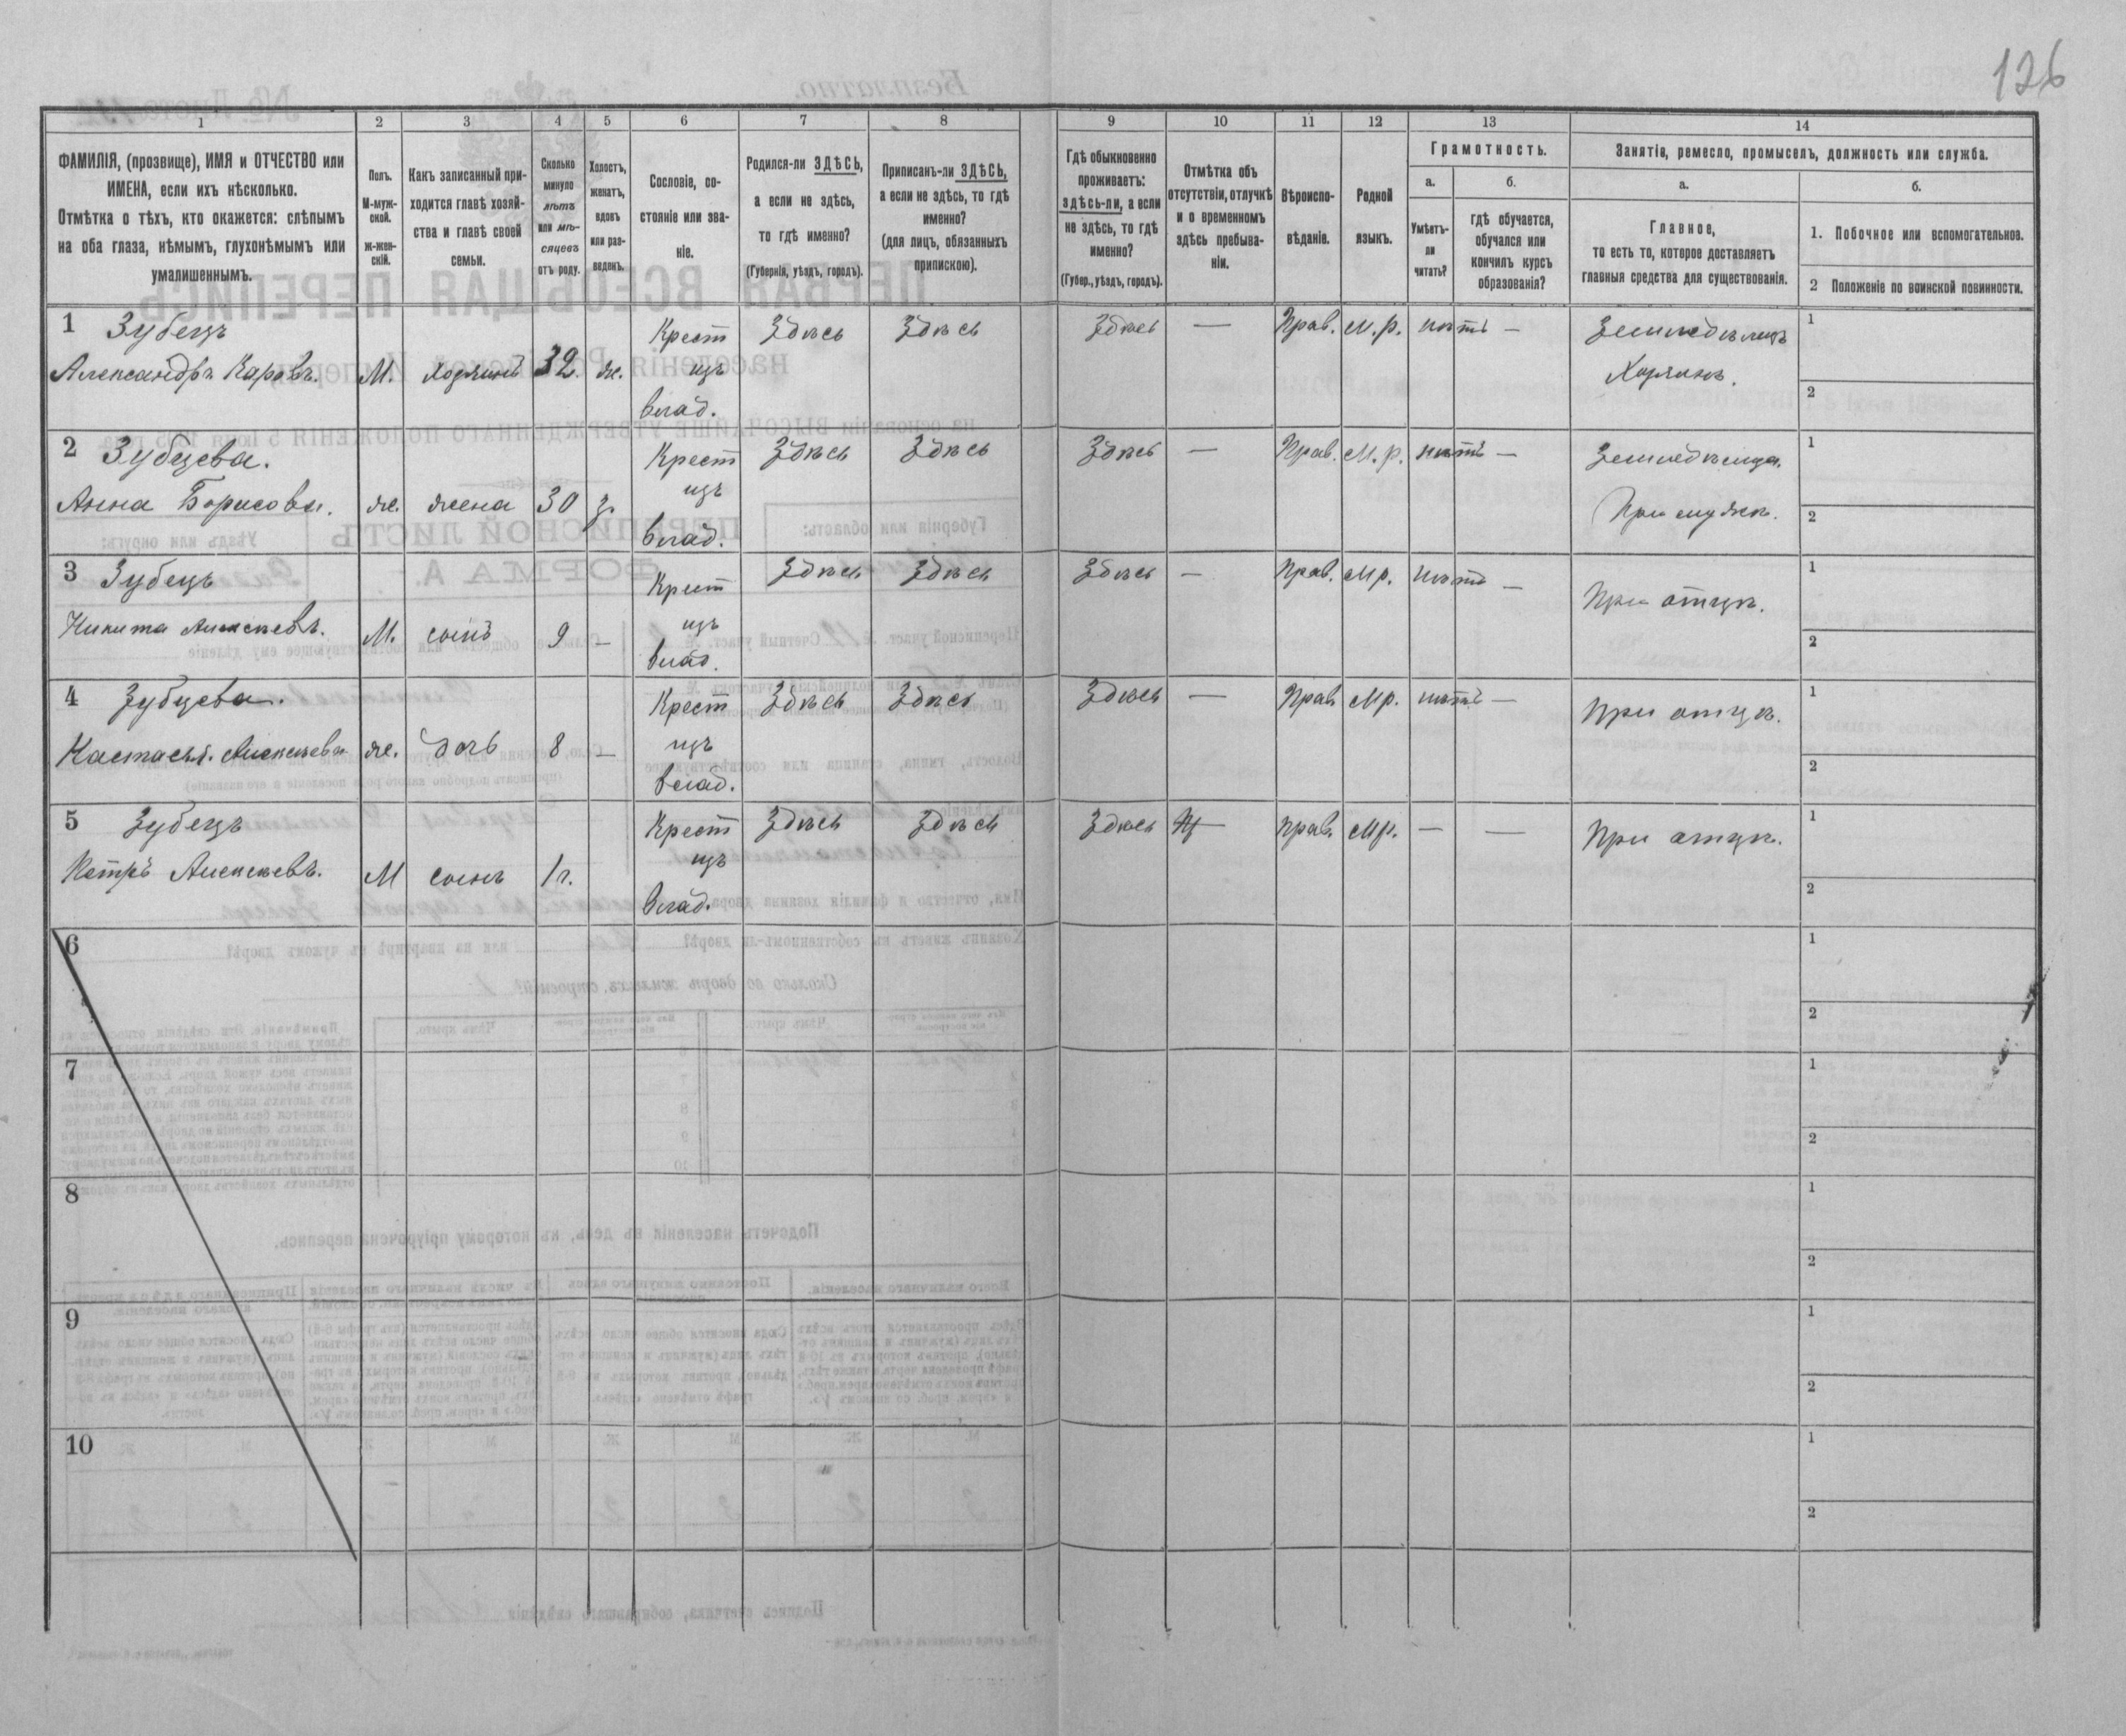 126
1 2 3 4 5 6 7 8 9 10 11 12 13 14
ФАМИЛІЯ, (прозвище), ИМЯ и ОТЧЕСТВО или
ИМЕНА, если ихъ нѣсколько.
Отмѣтка о тѣхъ, кто окажется: слѣпымъ
на оба глаза, нѣмымъ, глухонѣмымъ или
умалишеннымъ.
Полъ.
М-муж-
ской.
Ж-жен-
скій.
Какъ записанный при-
ходится главѣ хозяй-
ства и главѣ своей
семьи.
Сколько
минуло
лѣтъ
или мѣ-
сяцевъ
отъ роду.
Холостъ,
женатъ,
вдовъ
или раз-
веденъ.
Сословіе, со-
стояніе или зва-
ніе.
Родился-ли ЗДѢСЬ,
а если не здѣсь,
то гдѣ именно?
(Губернія, уѣздъ, городъ).
Приписанъ-ли ЗДѢСЬ,
а если не здѣсь, то гдѣ
именно?
(для лицъ, обязанныхъ
припискою).
Гдѣ обыкновенно
проживаетъ:
здѣсь-ли, а если
не здѣсь, то гдѣ
именно?
(Губер., уѣздъ, городъ).
Отмѣтка объ
отсутствіи, отлучкѣ
и о временномъ
здѣсь пребыва-
ніи.
Вѣроиспо-
вѣданіе.
Родной
языкъ.
Грамотность.
а.
Умѣетъ-
ли
читать?
б.
гдѣ обучается,
обучался или
кончилъ курсъ
образованія?
Занятіе, ремесло, промыселъ, должность или служба.
а.
Главное,
то есть то, которое доставляетъ
главныя средства для существованія.
б.
1. Побочное или вспомогательное.
2 Положеніе по воинской повинности.
1 Зубецъ Крест Здѣсь Здѣсь Здѣсь — Прав. М.р. нѣтъ — Земледѣлецъ 1
Александръ Карповъ. М. хозяинъ 32. ж. изъ Хозяинъ.
влад. 2
2 Зубцева. Крест Здѣсь Здѣсь Здѣсь — Прав. М.р. нѣтъ — 1
Анна Борисова. же. жена 30 з. изъ При мужѣ. 2
влад.
3 Зубецъ Крест Здѣсь Здѣсь Здѣсь — Прав. М р. нѣтъ — При отцѣ. 1
Никита Алексѣевъ. М. сынъ 9 — изъ 2
влад.
4 Зубцева. Крест Здѣсь Здѣсь Здѣсь — Прав М р. нѣтъ — При отцѣ. 1
Настасья. Алексѣева же. дочь 8 — изъ 2
влад.
5 Зубецъ Крест Здѣсь Здѣсь Здѣсь — Прав. М р. — — При отцѣ. 1
Петръ Алексѣевъ. М сынъ 1 г. изъ
влад. 2
6 1
2
7 1
2
8 1
2
9 1
2
10 1
2